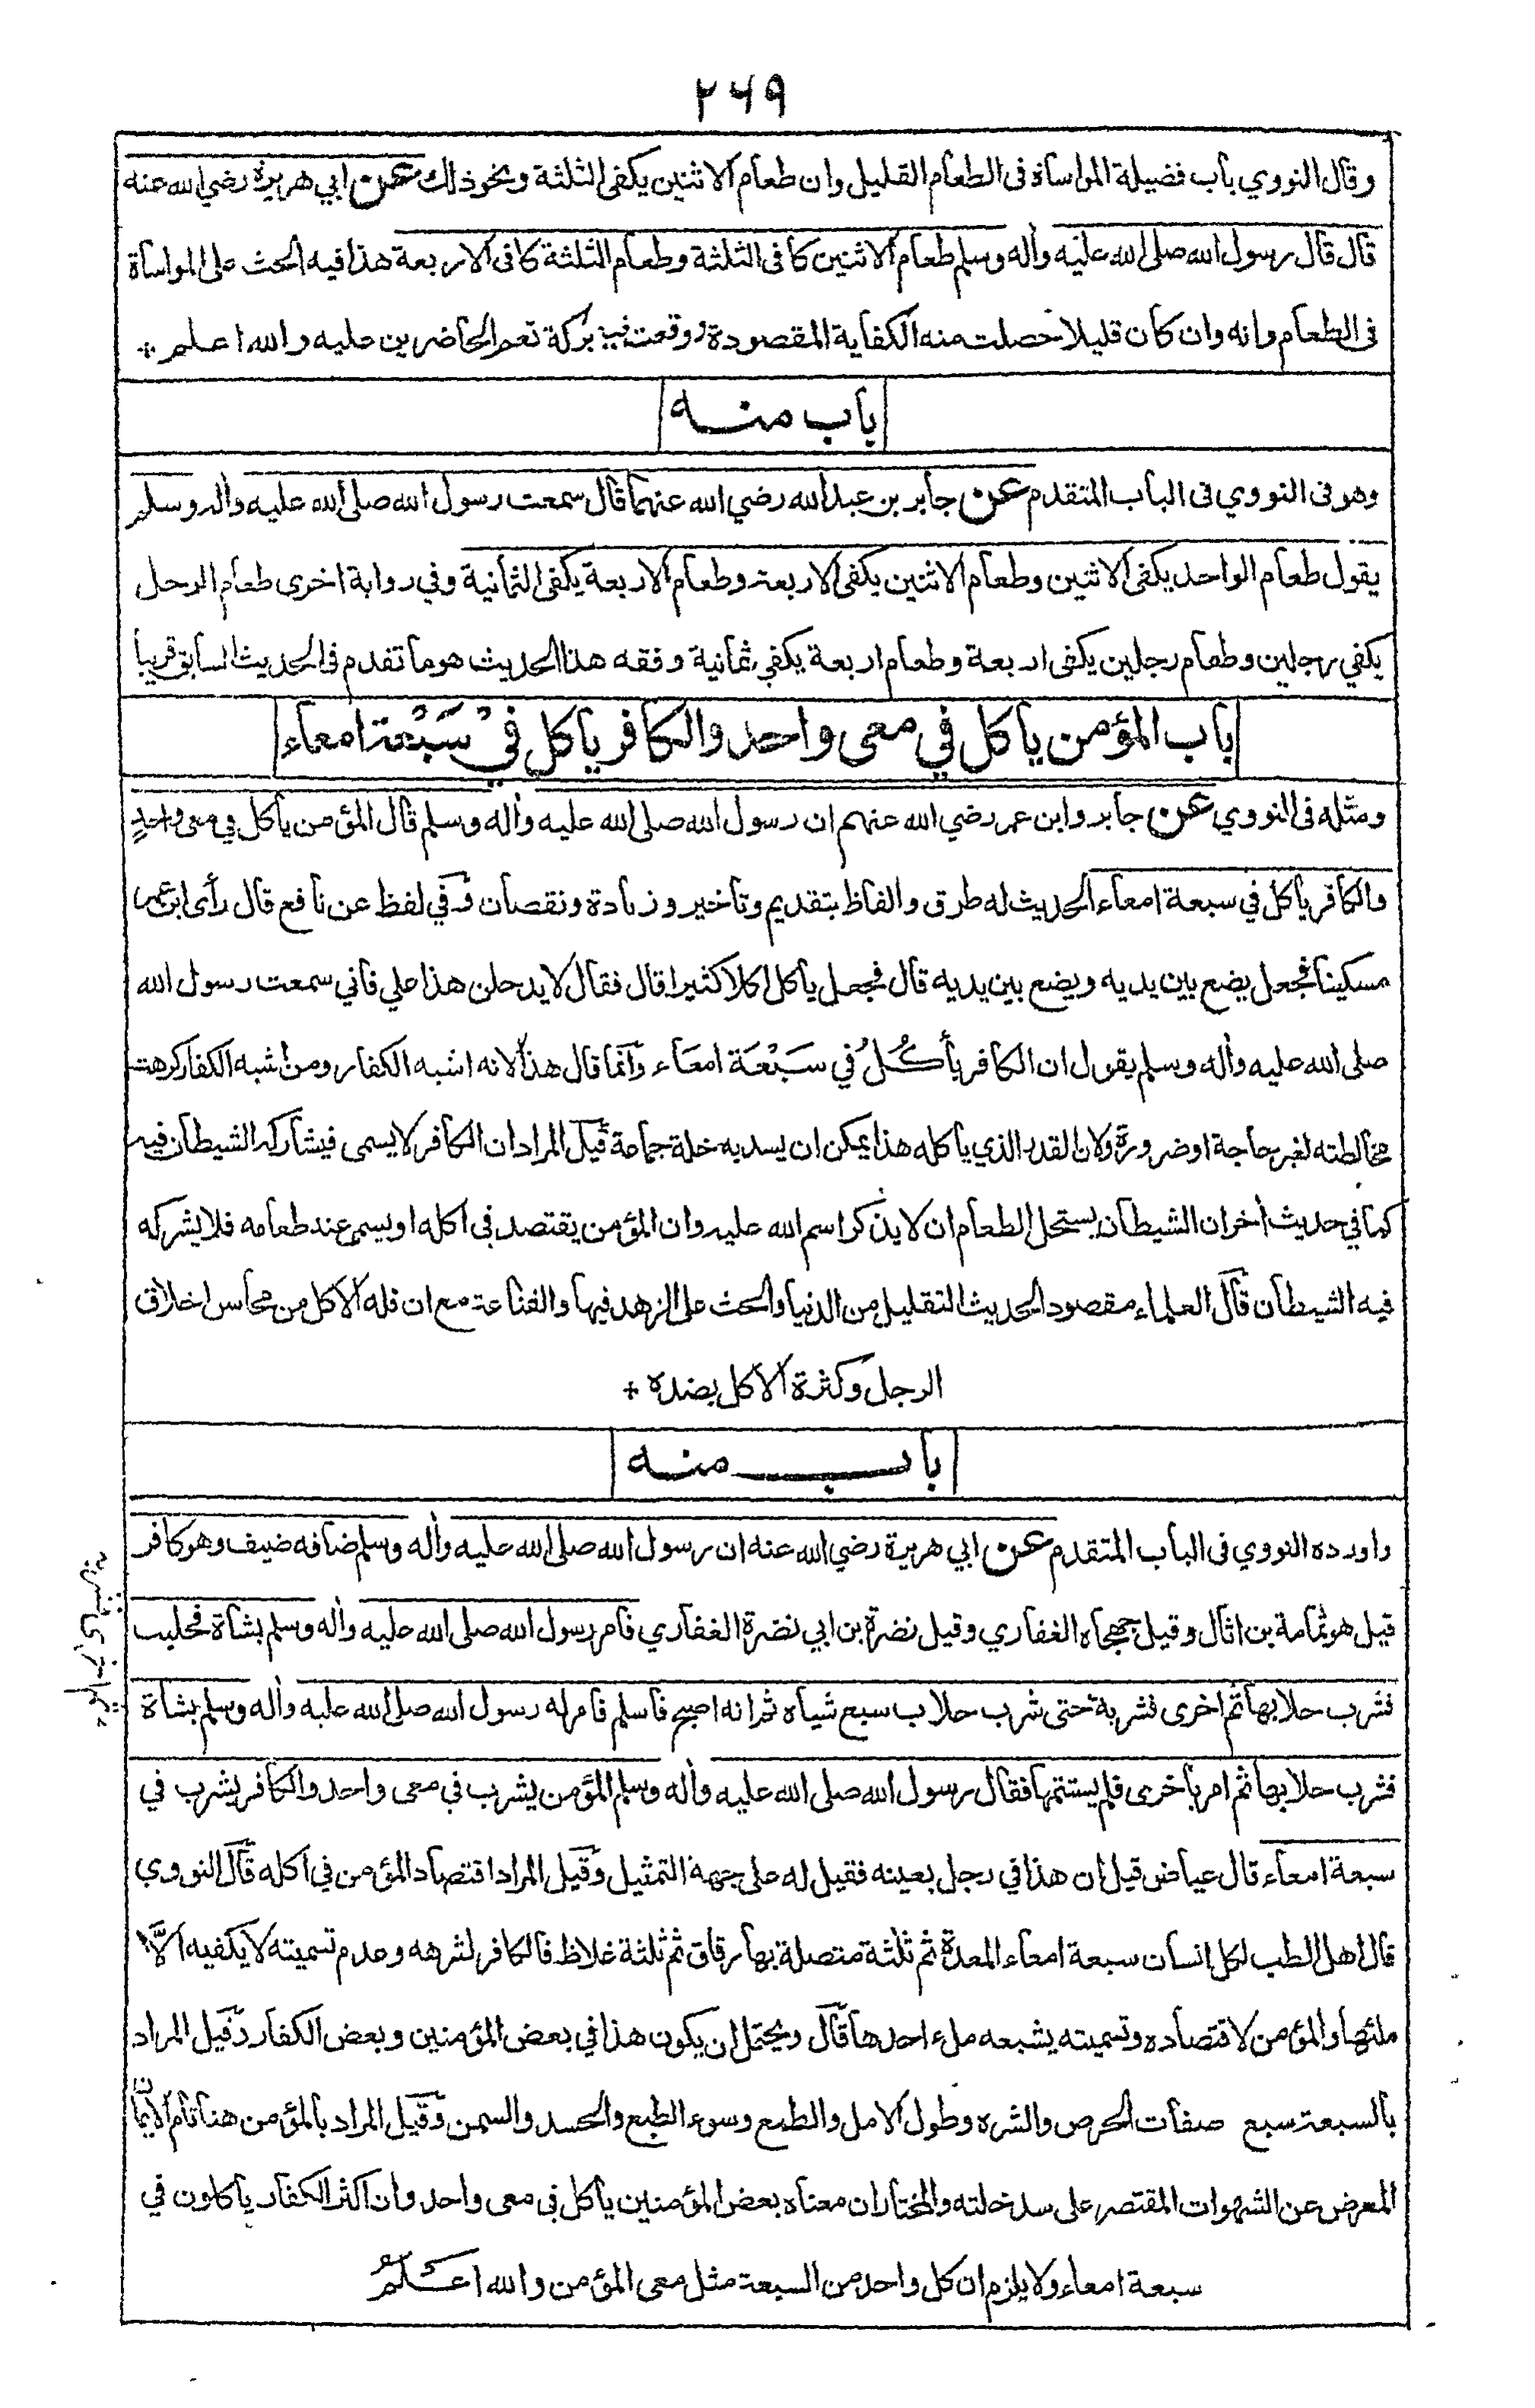 ٢٦٩
وقال النووي باب فضيلة المواساة فى الطعام القليل وان طعام الاثنين يكفى الثلثة ونحو ذلك عن ابي هريرة رضي الله عنه
قال قال رسول الله صلى الله عليه واٰله وسلم طعام الاثنين كافى الثلثة وطعام الثلثة كافى الاربعة هذا فيه الحث على المواساة
فى الطعام وانه وان كان قليلا حصلت منه الكفاية المقصودة ووقعت فيه بركة تعم الحاضرين عليه والله اعلم +
باب منه
وهو فى النووي فى الباب المتقدم عن جابر بن عبد الله رضي الله عنهما قال سمعت رسول الله صلى الله عليه واٰله وسلم
يقول طعام الواحد يكفى الاثنين وطعام الاثنين يكفى الاربعة وطعام الاربعة يكفى الثمانية وفي رواية اخرى طعام الرجل
يكفي رجلين وطعام رجلين يكفى اربعة وطعام اربعة يكفي ثمانية وفقه هذا الحديث هو ما تقدم فى الحديث السابق قريبا
باب المؤمن يأكل في معى واحد والكافر يأكل فيْ سَبْعة امعاء
ومثله فى النووي عن جابر وابن عمر رضي الله عنهم ان رسول الله صلى الله عليه واٰله وسلم قال المؤمن يأكل في معى واحدٍ
والكافر يأكل في سبعة امعاء الحديث له طرق والفاظ بتقديم وتاخير وزيادة ونقصان وفي لفظ عن نافع قال رأى ابن عمر
مسكينا فجعل يضع بين يديه ويضع بين يديه قال فجعل يأكل اكلا كثيرا قال فقال لا يدخلن هذا علي فاني سمعت رسول الله
صلى الله عليه واٰله وسلم يقول ان الكافر يأكُلُ في سَبْعَة امعَاء وانما قال هذا لانه اشبه الكفار ومن اشبه الكفار كرهت
مخالطته لغير حاجة او ضرورة ولان القدر الذي يأكله هذا يمكن ان يسد به خلة جماعة قيل المراد ان الكافر لا يسمى فيشاركه الشيطان فيه
كما في حديث اٰخر ان الشيطان يستحل الطعام ان لا يذكر اسم الله عليه وان المؤمن يقتصد في اكله او يسمي عند طعامه فلا يشركه
فيه الشيطان قال العلماء مقصود الحديث التقليل من الدنيا والحث على الزهد فيها والقناعة مع ان قلة الاكل من محاسن اخلاق
الرجل وكثرة الاكل بضده +
باب منه
واورده النووي فى الباب المتقدم عن ابي هريرة رضي الله عنه ان رسول الله صلى الله عليه واٰله وسلم ضافه ضيف وهو كافر
قيل هو ثمامة بن اثال وقيل جهجاه الغفاري وقيل نضرة بن ابي نضرة الغفاري فامر رسول الله صلى الله عليه واٰله وسلم بشاة فحلبت
فشرب حلابها ثم اخرى فشربه حتى شرب حلاب سبع شياه ثم انه اصبح فاسلم فامر له رسول الله صلى الله عليه واٰله وسلم بشاة
فشرب حلابها ثم امر باخرى فلم يستتمها فقال رسول الله صلى الله عليه واٰله وسلم المؤمن يشرب في معى واحد والكافر يشرب في
سبعة امعاء قال عياض قيل ان هذا في رجل بعينه فقيل له على جهة التمثيل وقيل المراد اقتصاد المؤمن في اكله قال النووي
قال اهل الطب لكل انسان سبعة امعاء المعدة ثم ثلثة متصلة بها رقاق ثم ثلثة غلاظ فالكافر لشرهه وعدم تسميته لا يكفيه الَّا
ملئها والمؤمن لاقتصاده وتسميته يشبعه ملء احدها قال ويحتمل ان يكون هذا في بعض المؤمنين وبعض الكفار وقيل المراد
بالسبعة سبع صفات الحرص والشره وطول الامل والطمع وسوء الطبع والحسد والسمن وقيل المراد بالمؤمن هنا تام الايمان
المعرض عن الشهوات المقتصر على سد خلته والمختار ان معناه بعض المؤمنين يأكل في معى واحد وان اكثر الكفار يأكلون في
سبعة امعاء ولا يلزم ان كل واحد من السبعة مثل معى المؤمن والله اعْلَمُ